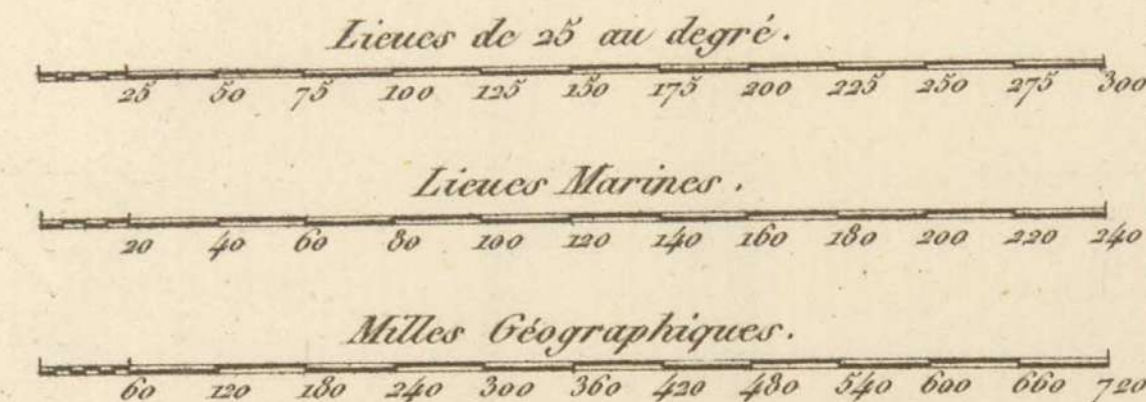 Lieues de 25 au degré.
25 50 75 100 125 150 175 200 225 250 275 300
Lieues Marines.
20 40 60 80 100 120 140 160 180 200 220 240
Milles Géographiques.
60 120 180 240 300 360 420 480 540 600 660 720